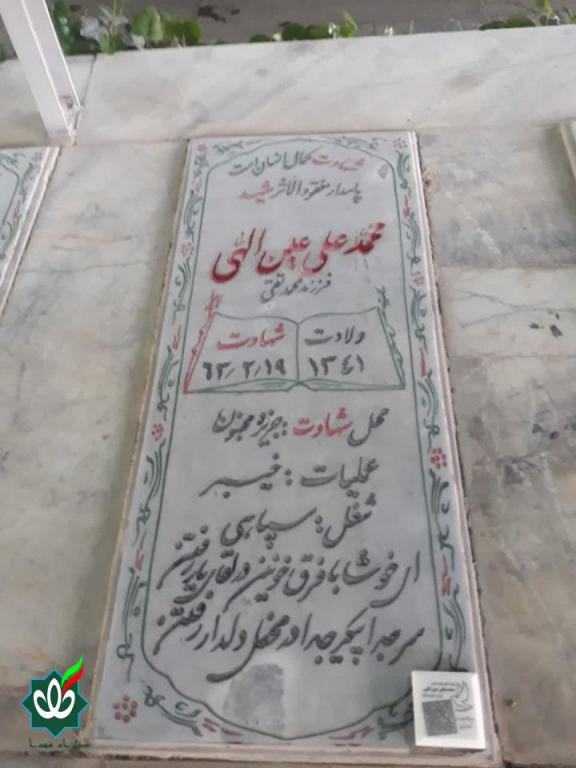 شهادت کمال انسان است
پاسدار مفقودالاثر شهید
محمد علی عین الهی
فرزند محمد تقی
ولادت شهادت
۱۳۴۱ ۶۳٫۲٫۱۹
محل شهادت : جزیره مجنون
عملیات : خیبر
شغل : سپاهی
ای خوشا با فرق خونین در لقای یار رفتن
سر جدا پیکر جدا در محفل دلدار رفتن